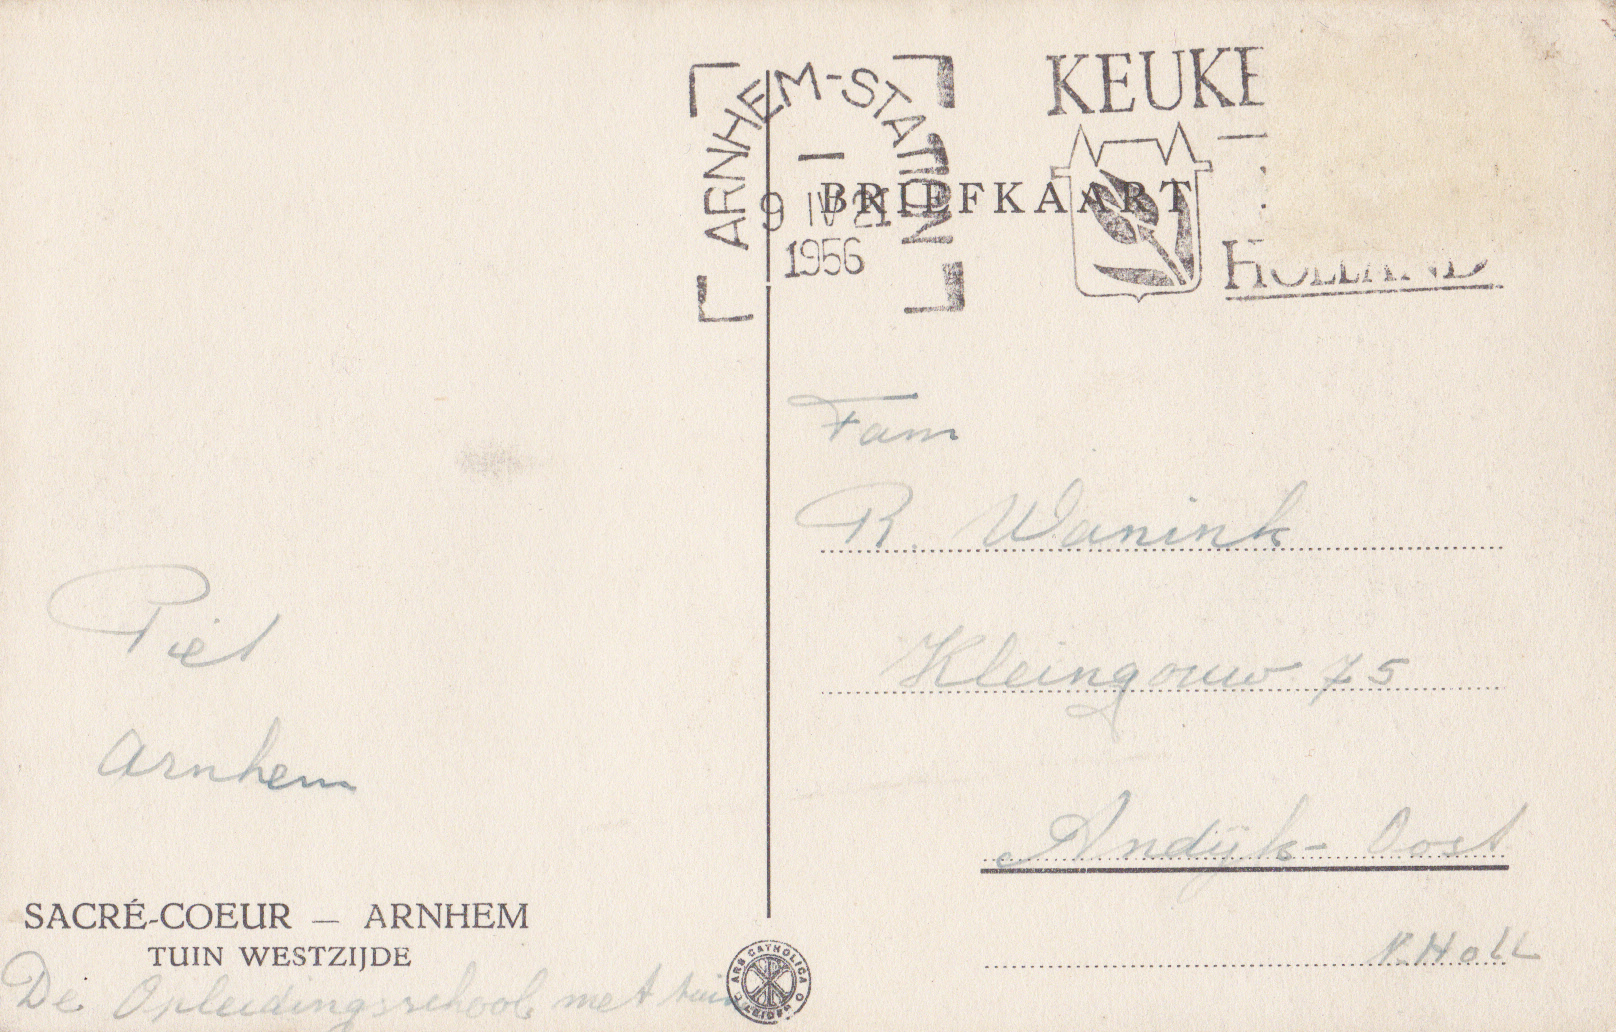 ARNHEM-STATION
9 IV 21
1956
KEUKE
HOLLAND
BRIEFKAART
Fam
R. Wanink
Kleingouw 75
Andijk-Oost
N.Holl
Piet
Arnhem
SACRÉ-COEUR — ARNHEM
TUIN WESTZIJDE
De Opleidingsschool met tuin
ARS CATHOLICA
LEIDEN